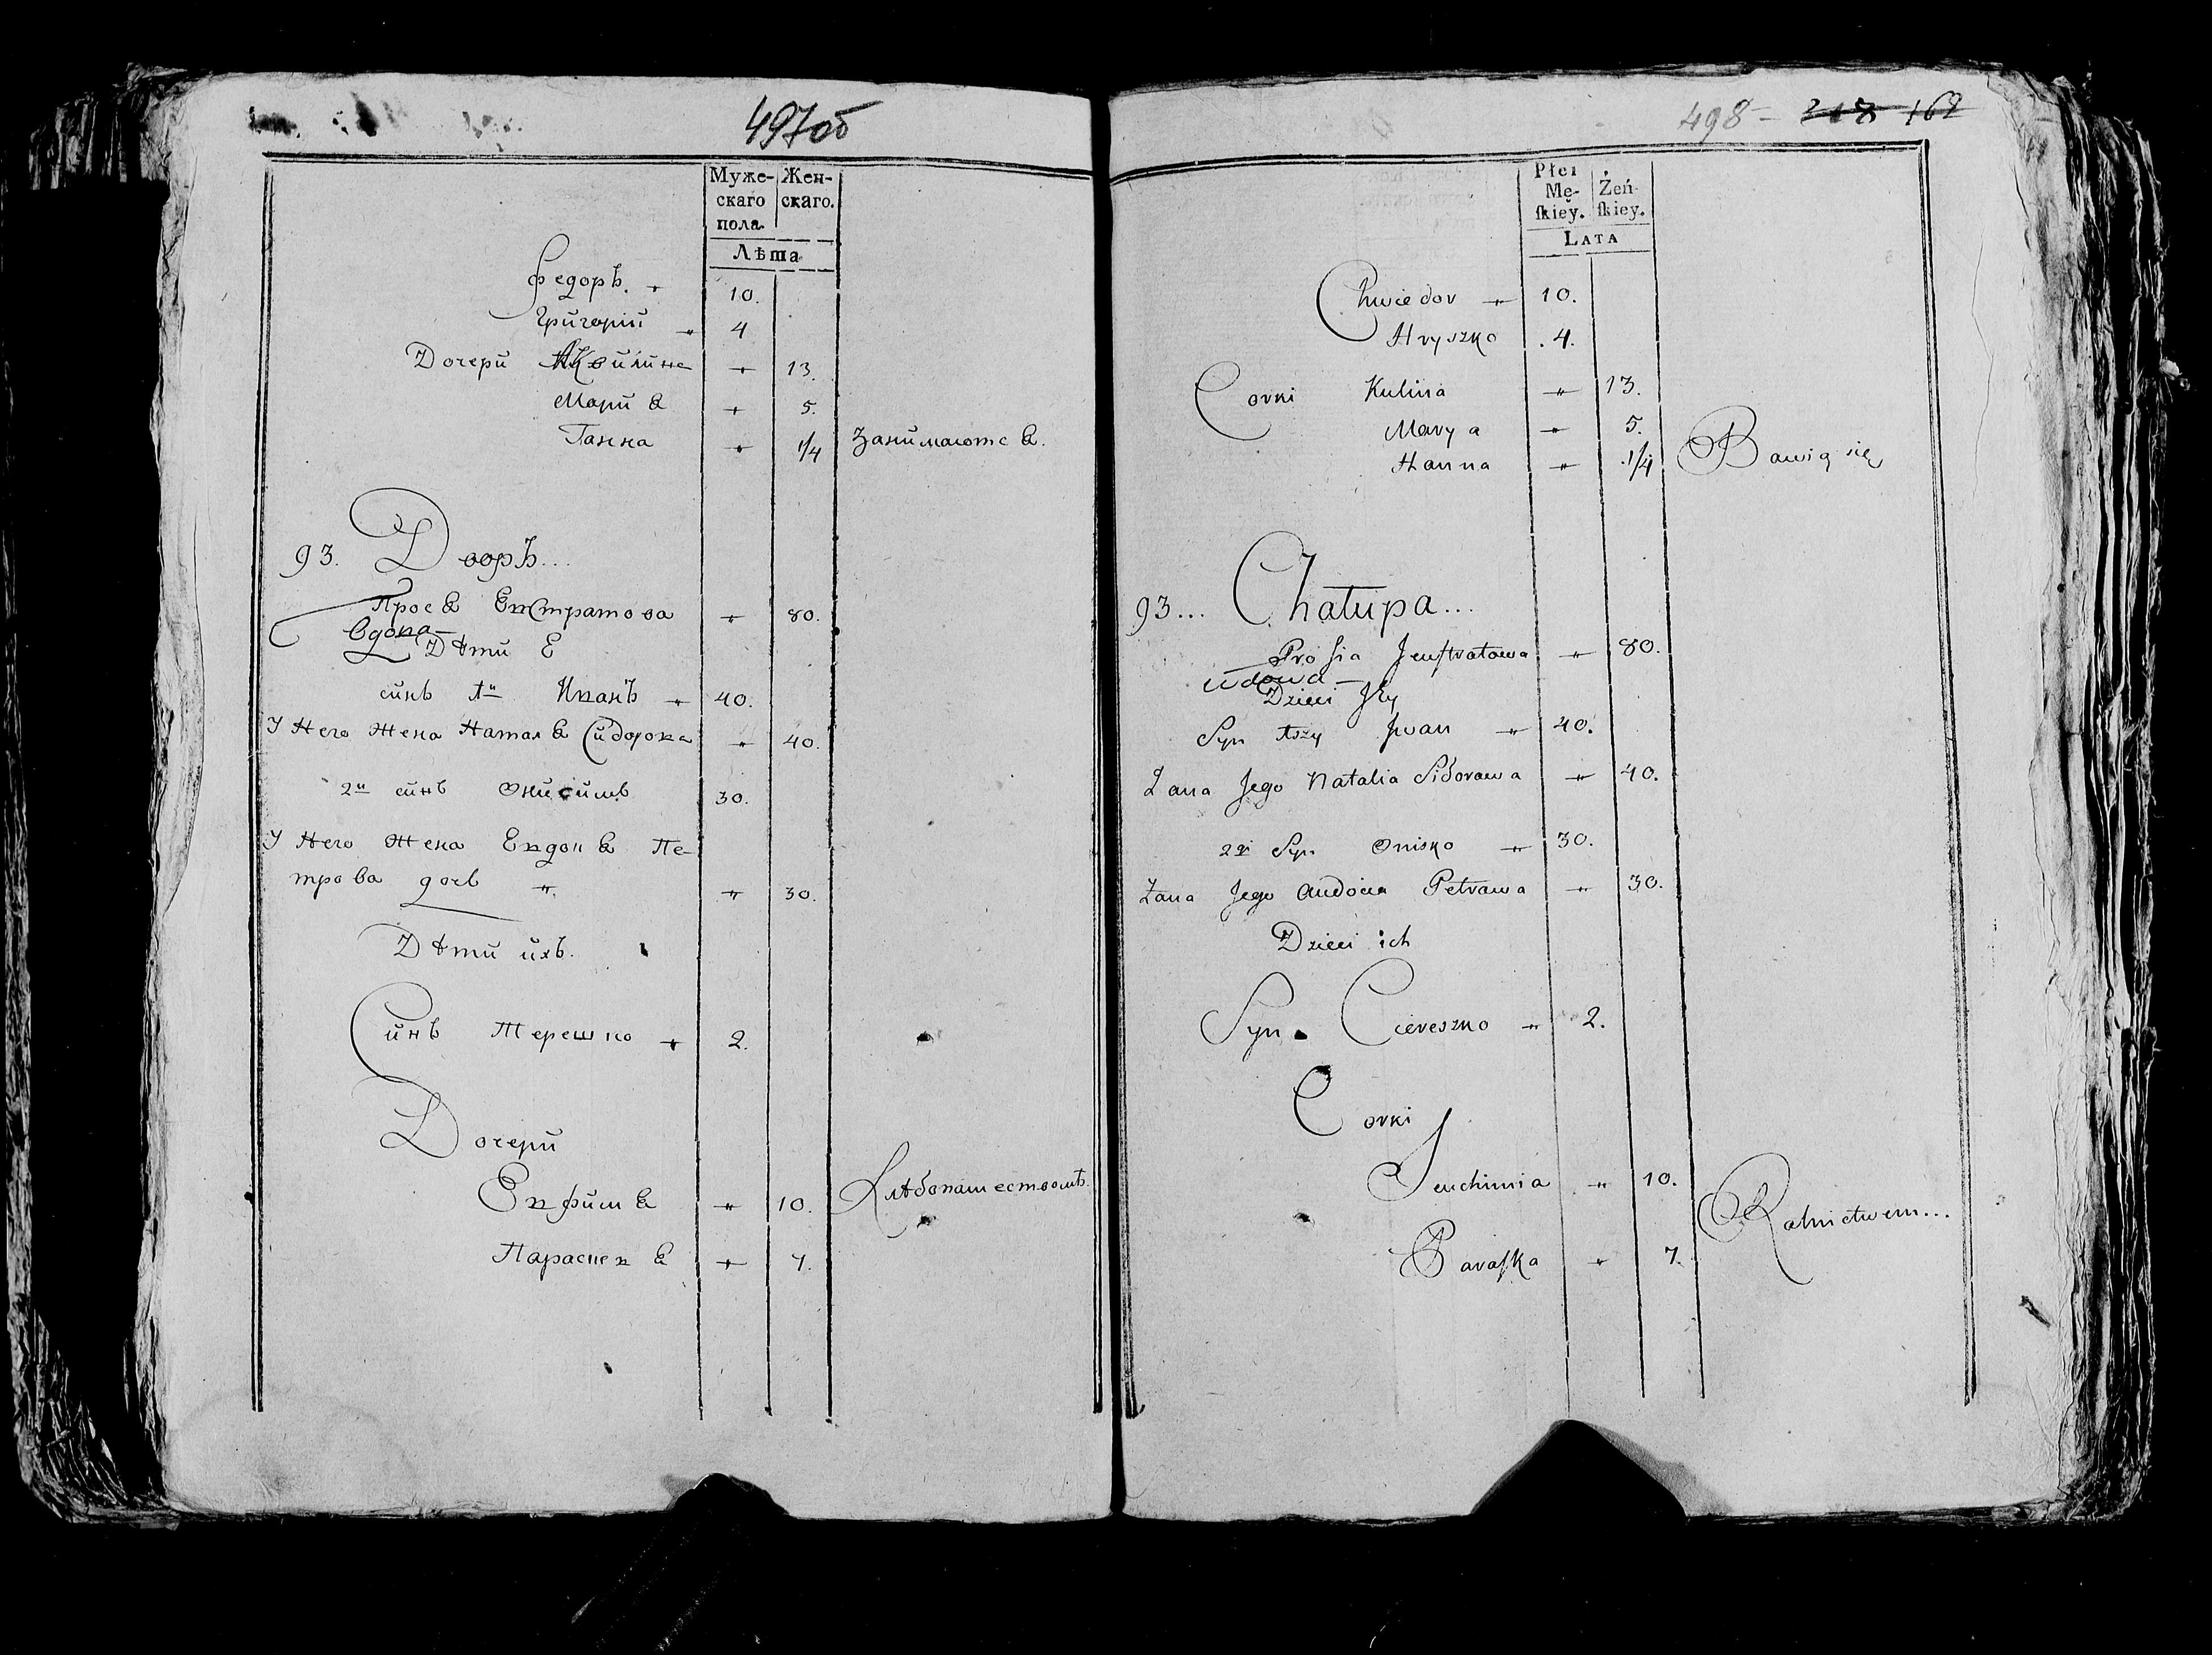 497об
Муже- Жен-
скаго скаго.
пола
Лѣта
Федоръ. " 10.
Григорій " 4
Дочери Акилина " 13.
Мариѧ " 5.
Ганна " 1/4 Занимаютсѧ.
93. Дворъ...
Просѧ Евстратова " 80.
вдова
Дѣти Е
синъ 1й Иванъ " 40.
У Него Жена Наталѧ Сидорова " 40.
2й синъ Онисимъ 30.
У Него Жена Евдокѧ Пе-
трова дочь " " 30.
Дѣти ихъ.
Синъ Терешко " 2.
Дочери
Евфимѧ " 10. Хлѣбопашествомъ.
Парасневѧ " 7.
498 - 218 162
Płci
Mę- Żeń-
ſkiey. ſkiey.
LATA
Chwiedor " 10.
Hryszko . 4.
Corki Kulina " 13.
Marya " 5.
Hanna " 1/4 Bawią się
93... Chałupa...
Proſia Jewſtratowa " 80.
wdowa
Dzieci Jey
Syn 1szy Jwan " 40.
Żana Jego Natalia Sidorawa " 40.
2gi Syn Onisko " 30.
Żana Jego Audocia Petrawa " 30.
Dzieci ich
Syn Ciereszko " 2.
Corki
Jeuchimia " 10.
Rolnictwem...
Paraſka " 7.